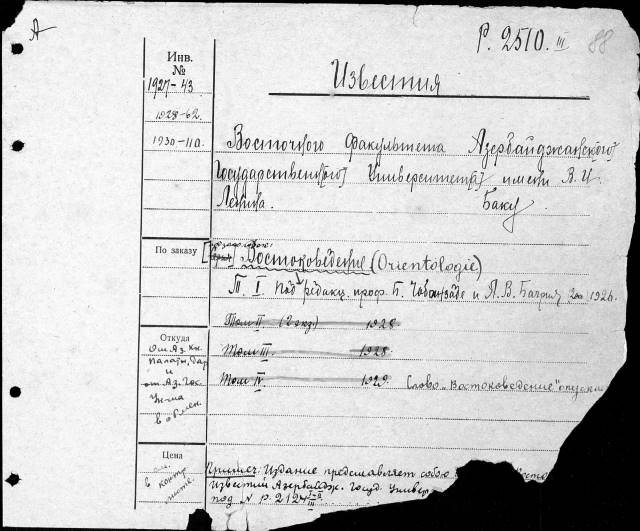 А
Р. 2510. III
88
Инв.
№
1927-43
1928-62
1930-110.
Известия
Восточного Факультета Азербайджанского
Государственного Университета имени В. И.
Ленина. Баку
По заказу
Востоковедение (Orientologie)
Т. I. Под редакц. проф. Б. Чобанзаде и А. В. Багрия 1926.
Том II (2 экз.) 1928
Том III. 1928.
Том IV 1929. Слово "Востоковедение"
Откуда
От Аз. Кн.
палаты, дар
и
от Аз. Гос.
Ун-та
в обмен
Цена
в контр
Примеч: Издание представляет собою
Известий Азербайдж. Госуд. Универ
под № Р. 2124